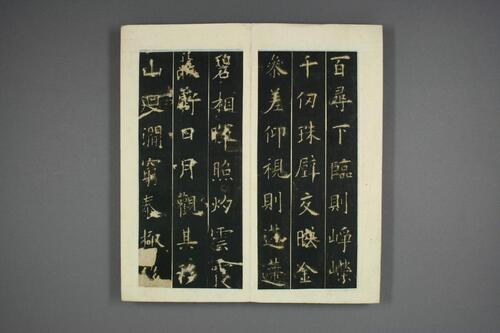 百尋下臨則崢嶸
千仞珠壁交映金
參差仰視則迢遰
碧相暉照灼雲霞
蔽虧日月觀其移
山廻澗窮泰極侈